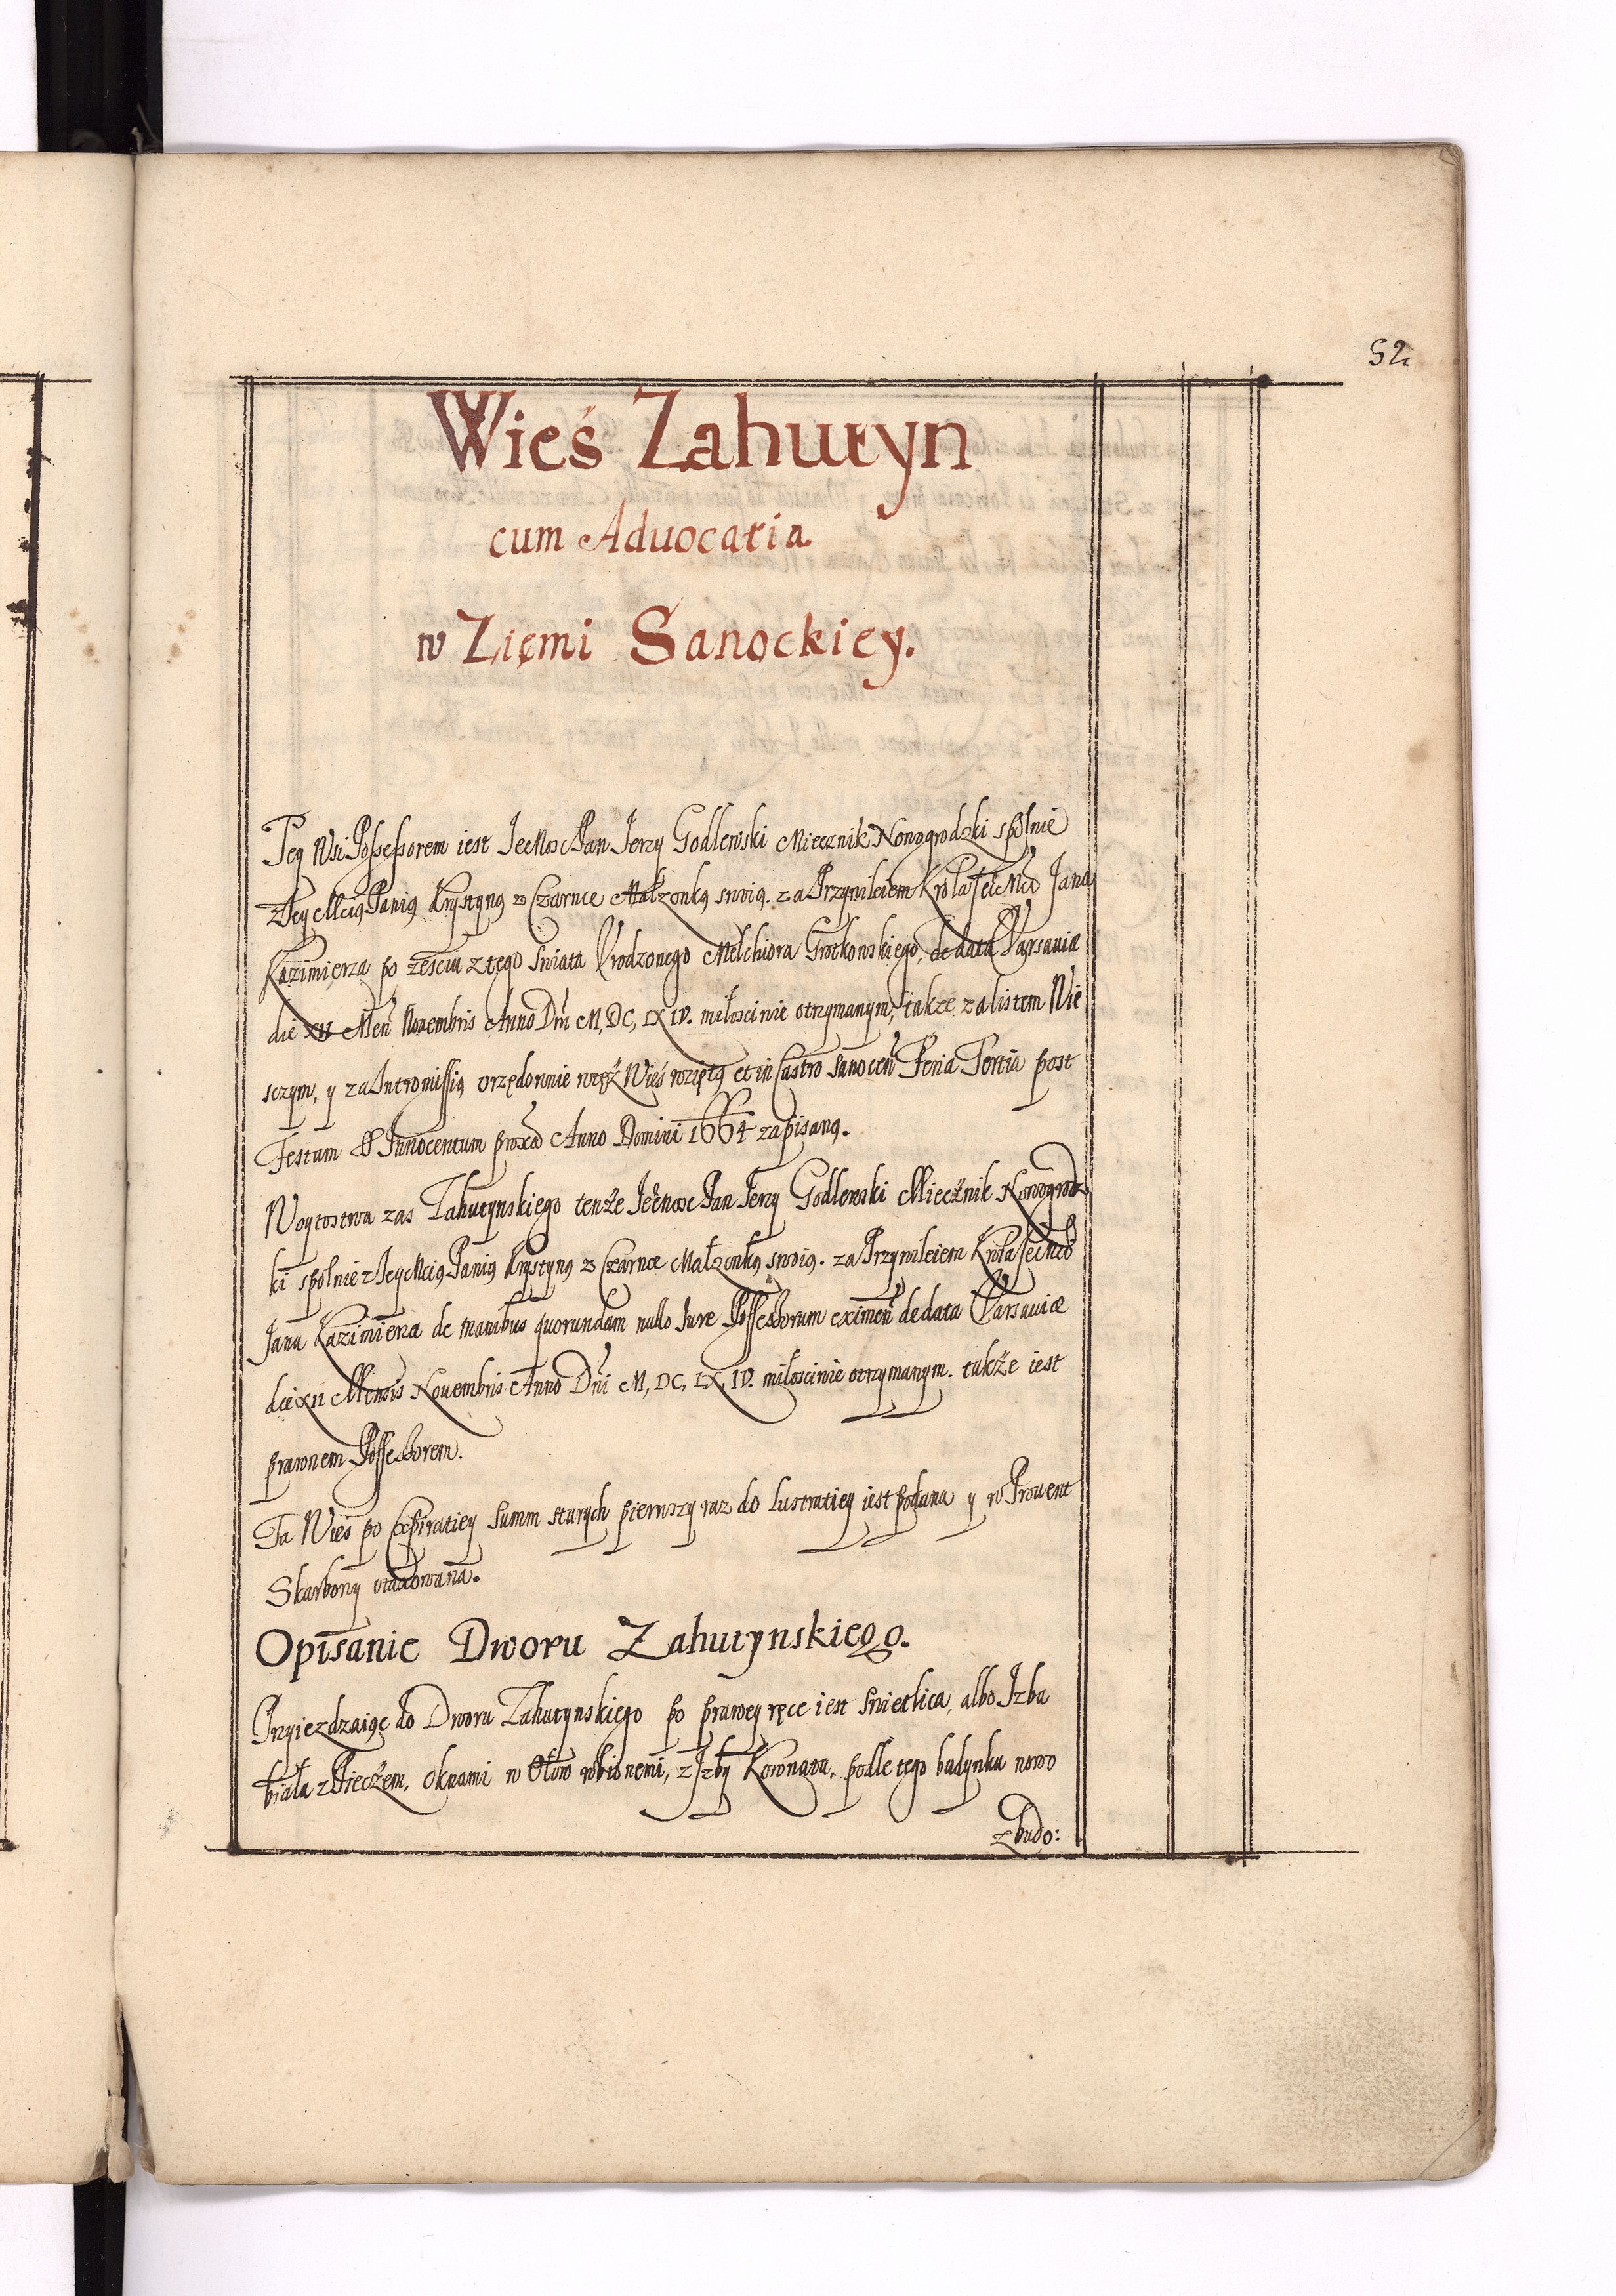 52
Wieś Zahutyn
cum Aduocatia
w Ziemi Sanockiey.
Tey Wsi Possessorem iest JeoMosc Pan Jerzy Godlewski Miecznik Nowogrodzki spolnie
z Jey Mcią Panią Krystyną z Czarnce Małzonką swoią. za Przywileiem Krola Jeo Mci Jana
Kazimierza po ześciu z tego swiata Vrodzonego Melchiora Grotkowskiego, de data Varsauiæ
die XII Men Nouembris Anno Dni M, DC, LX IV. miłosciwie otrzymanym, także za listem Wie
sczym, y za Intromissią vrzędownie w tęż Wieś wziętą et in Castro Sanocen Feria Tertia post
Festum SS Innocentum proxa Anno Domini 1664 zapisaną.
Woytostwa zas Zahutynskiego tenże Jeomosc Pan Jerzy Godlewski Miecznik Nowogrodz
ki spolnie z Jey Mcią Panią Krystyną z Czarnce Małzonką swoią. za Przywileiem Krola Jeo Mci
Jana Kazimierza de manibus quorundam nullo Iure Possessorum eximen de data Varsauiæ
die XII Mensis Nouembris Anno Dni M, DC, LX, IV. miłosciwie otrzymanym. także iest
prawnem Possessorem.
Ta Wieś po Expiratiey Summ starych pierwszy raz do Lustratiey iest podana y w Prouent
Skarbony vtaxowana.
Opisanie Dworu Zahutynskiego.
Przyiezdzaiąc do Dworu Zahutynskiego po prawey ręce iest Swietlica, albo Izba
biała z Pieczem, oknami w Ołow robionemi, z Izby Komnata, podle tego budynku nowo
zbudo: